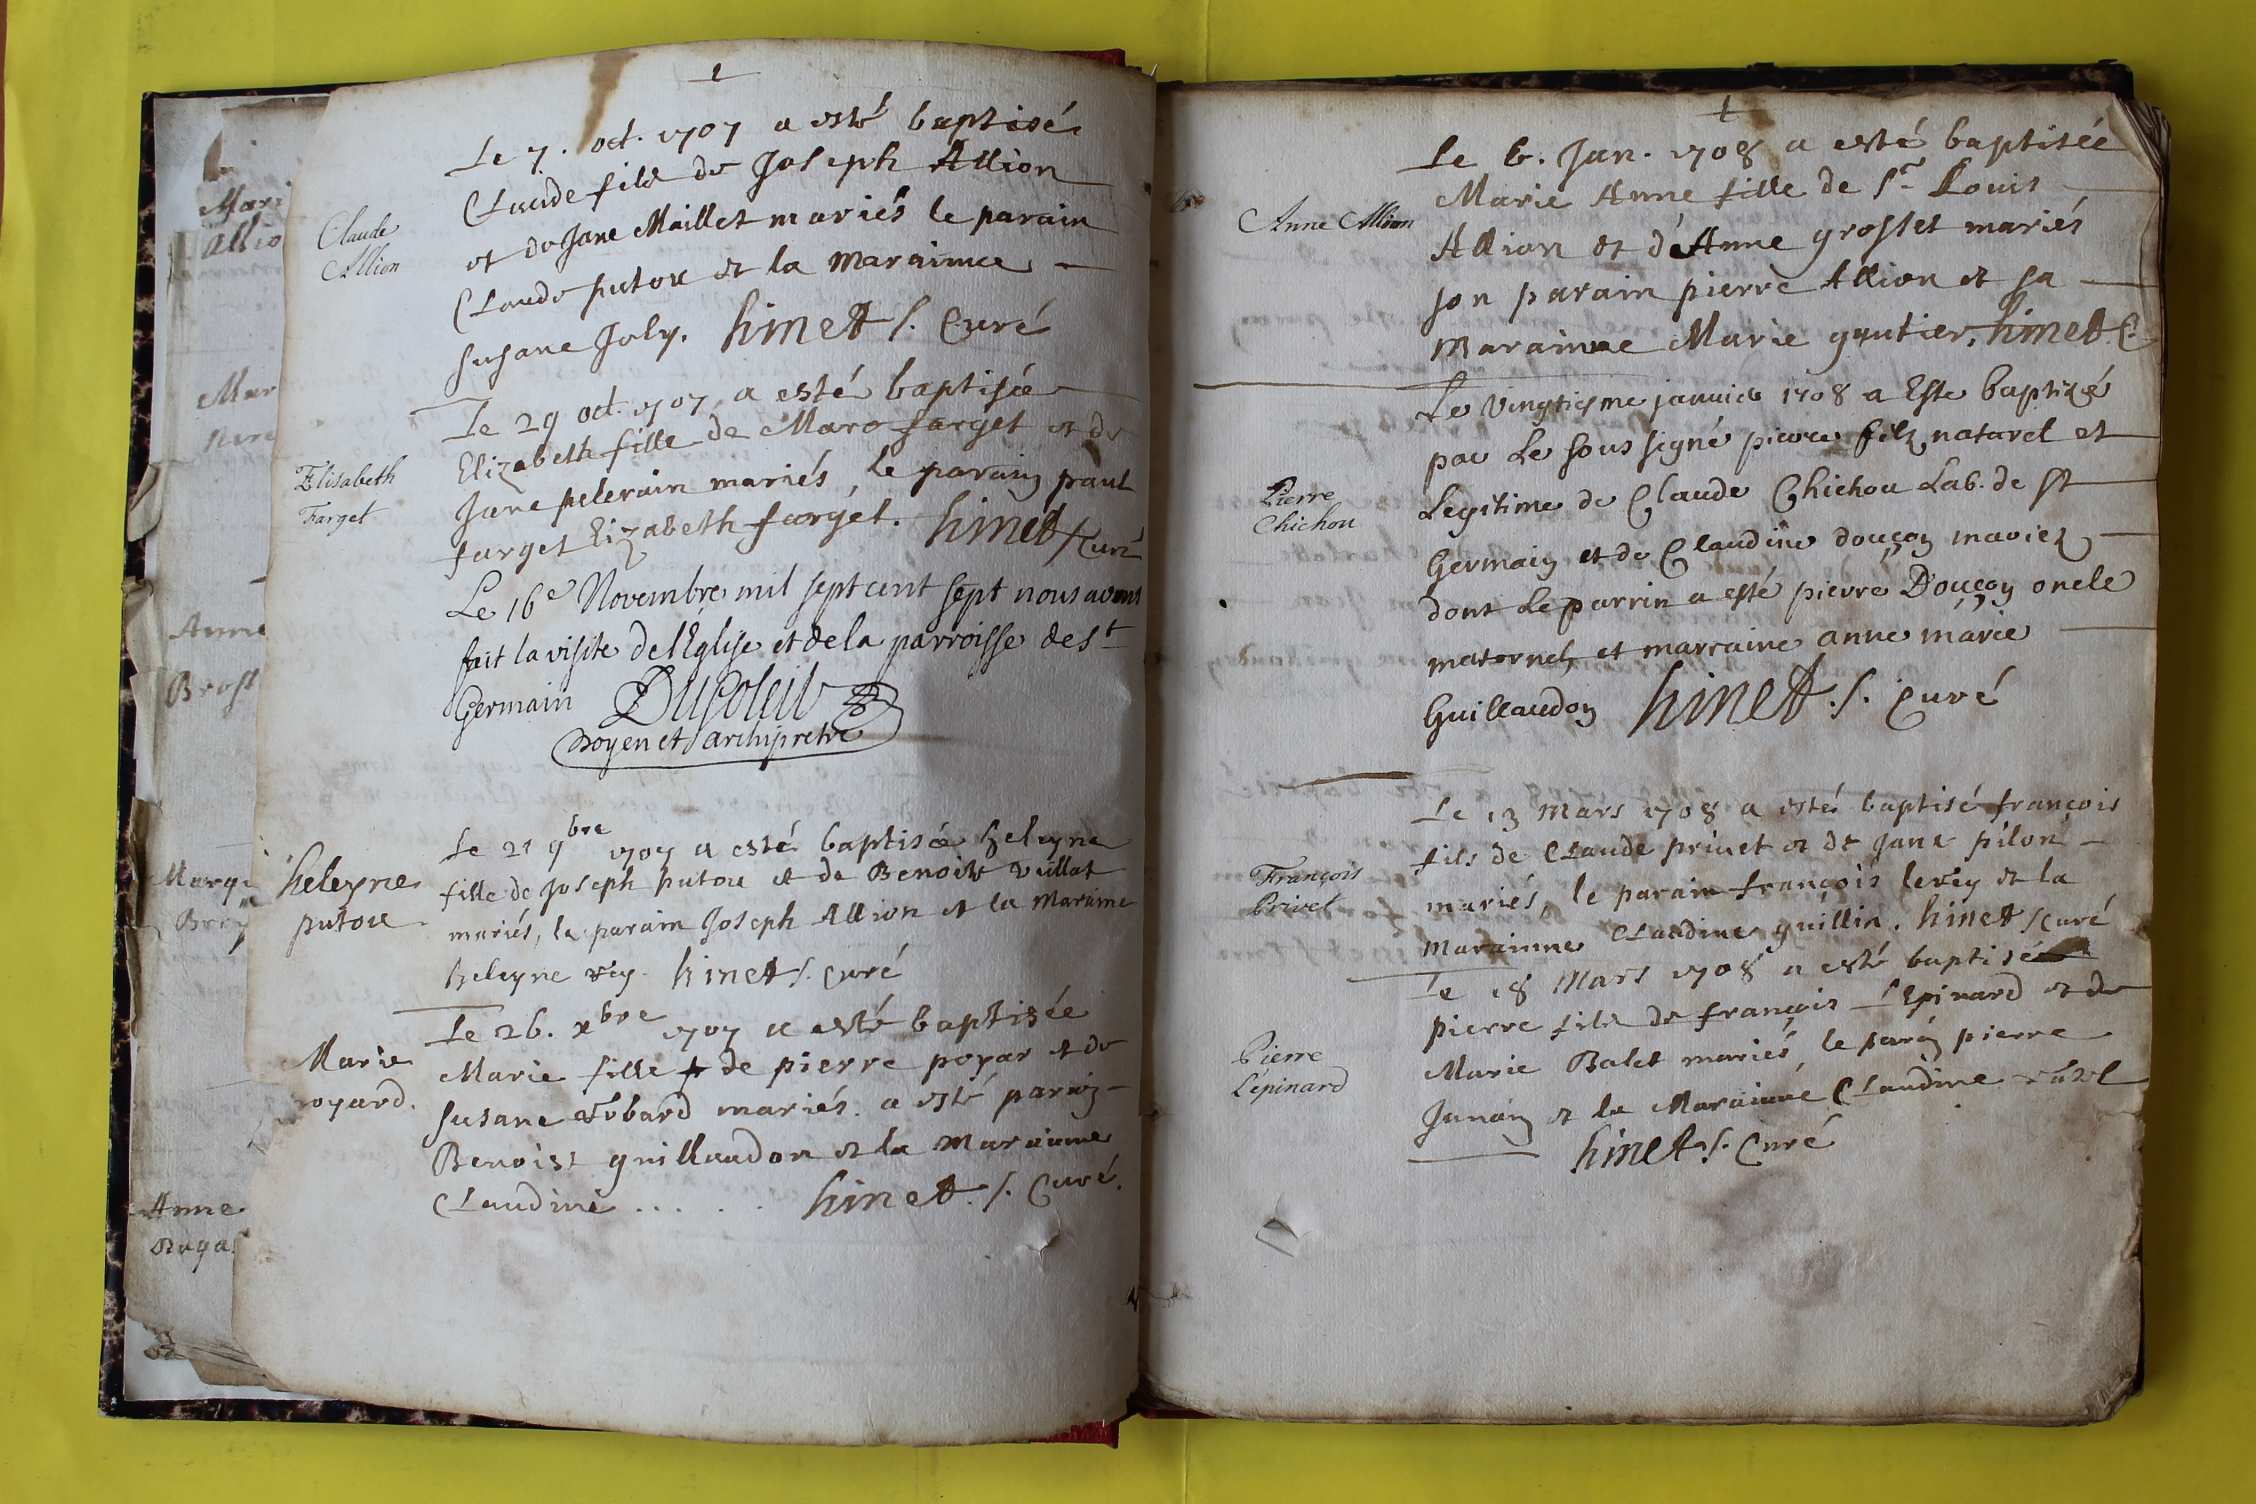 Mari
Allio
Mar
Anne
Brost
Marg
Anne
Buga
Le 7. oct. 1707 a esté baptisé
Claude fils de Joseph Allion
et de Jane Maillet mariés le parain
Claude putou et la maraimne
susane Joly. hinet s. Curé
Claude
Allion
Le 29 oct. 1707 a esté baptisée
Elizabeth fille de Marc farget et de
Jane pelerain mariés, le parain paul
farget Elizabeth farget. hinet s Curé
Elisabeth
Farget
Le 16e Novembre mil sept cent sept nous avons
fait la visite de l'Eglise et de la parroisse de St
Germain
Doyen et archipretre
Le 21 9bre 1707 a esté baptisée heleyne
fille de Joseph putou et de Benoite Vuillat
mariés, le parain Joseph Allion et la Maraimne
heleyne rey. hinet s. curé
heleyne
putou
Le 26. xbre 1707 a esté baptisée
Marie fille de pierre poyar et de
susane mariés. a esté parain
Benoist guillaudon et la Maraimne
Claudine . . . . . hinet. s. Curé.
Marie
oyard.
Le 6. Jan. 1708 a esté baptisée
Marie Anne fille de Sr Louis
Allion et d'Anne grosset mariés
son parain pierre Allion et sa
maraimne Marie gautier. hinet C.
Anne Allion
Le vingtiesme janvier 1708 a Este baptizé
par Le sous signé pierre filz naturel et
Legitime de Claude Chichou Lab. de St
Germain et de Claudine douçon mariez
dont Le parrin a esté pierre Douçon oncle
maternel, et marraine anne marie
Guillaudon hinet. s. Curé
Pierre
Chichou
Le 13 Mars 1708 a esté baptisé françois
fils de Claude privet et de Jane pilon
mariés, le parain françois levey et la
maraimne Claudine guillin. hinet s curé
François
Privet
Le 18 Mars 1708 a esté baptisé
pierre fils de françois L'Epinard et de
Marie Balet mariés, le parain pierre
Janain et la Maraimne Claudine
hinet s. Curé
Pierre
Lépinard